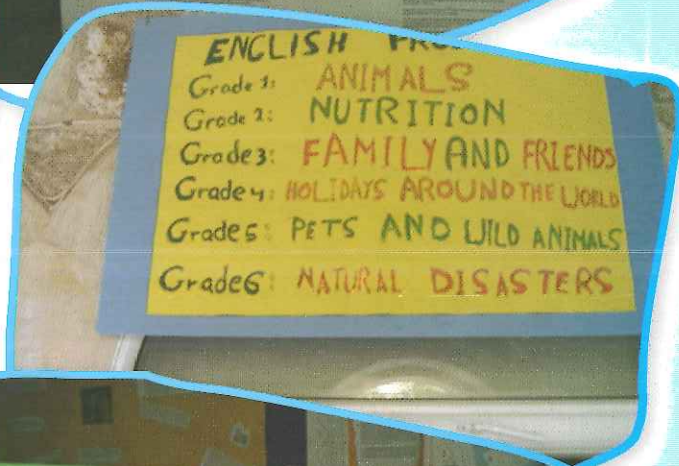 ENGLISH
Grade 1: ANIMALS
Grade 2: NUTRITION
Grade 3: FAMILY AND FRIENDS
Grade 4: HOLIDAYS AROUND THE WORLD
Grade 5: PETS AND WILD ANIMALS
Grade 6: NATURAL DISASTERS